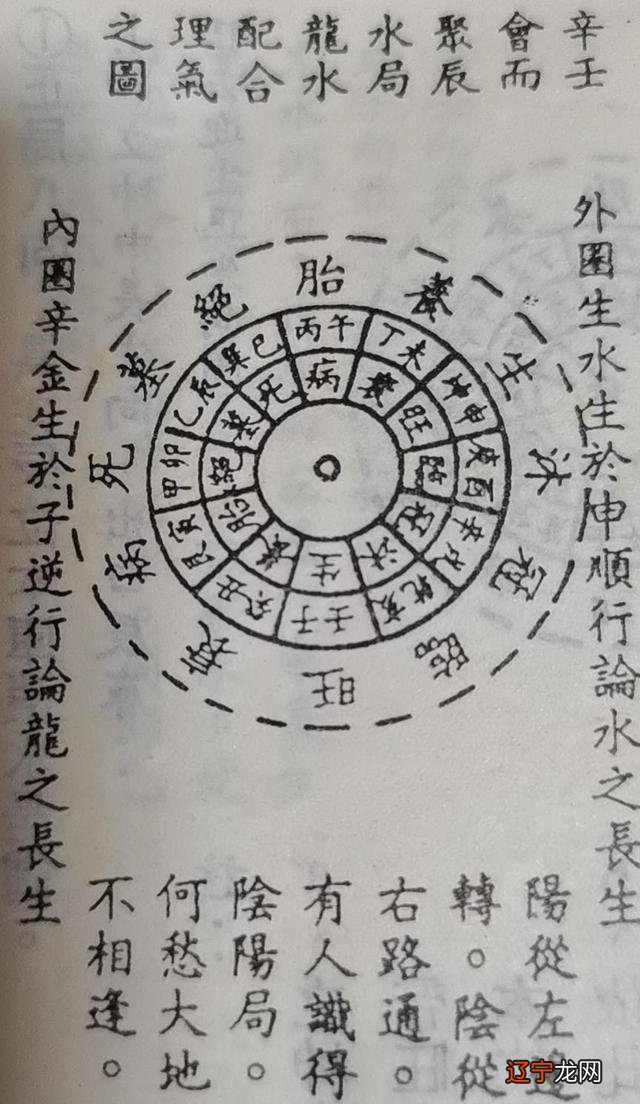 辛壬
會而
聚辰
水局
龍水
配合
理氣
之圖
外圈生水生於申順行論水之長生
胎
養
生
沐
冠
臨
旺
衰
病
死
墓
絕
丙午
丁未
坤申
庚酉
辛戌
乾亥
壬子
癸丑
艮寅
甲卯
乙辰
巽巳
病
衰
旺
臨
冠
沐
生
養
胎
絕
墓
死
內圈辛金生於子逆行論龍之長生
陽從左邊
轉。陰從
右路通。
有人識得
陰陽局。
何愁大地
不相逢。
辽宁龙网